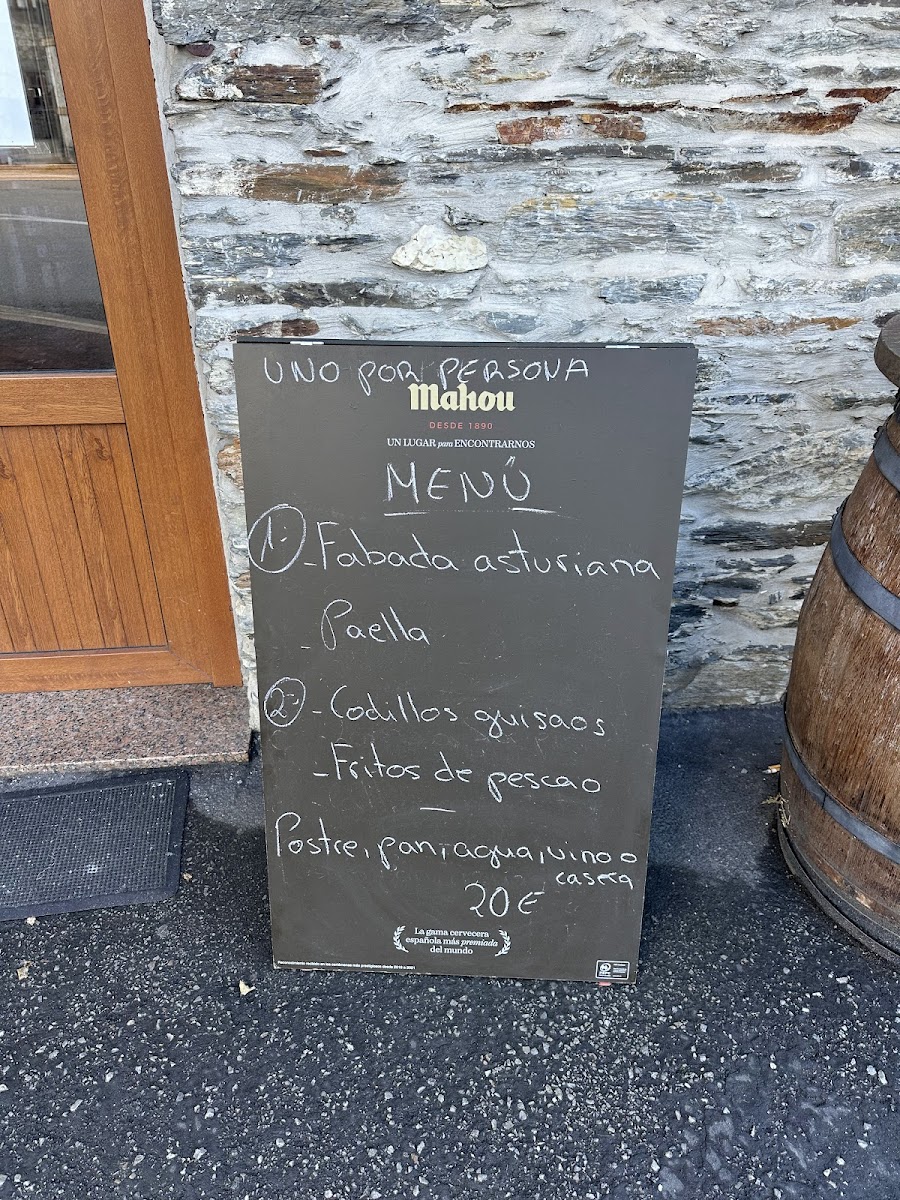 UNO POR PERSONA
Mahou
DESDE 1890
UN LUGAR para ENCONTRARNOS
MENÚ
1º - Fabada asturiana
- Paella
2º - Codillos guisaos
- Fritos de pescao
Postre, pan, agua, vino o
casera
20€
La gama cervecera
española más premiada
del mundo